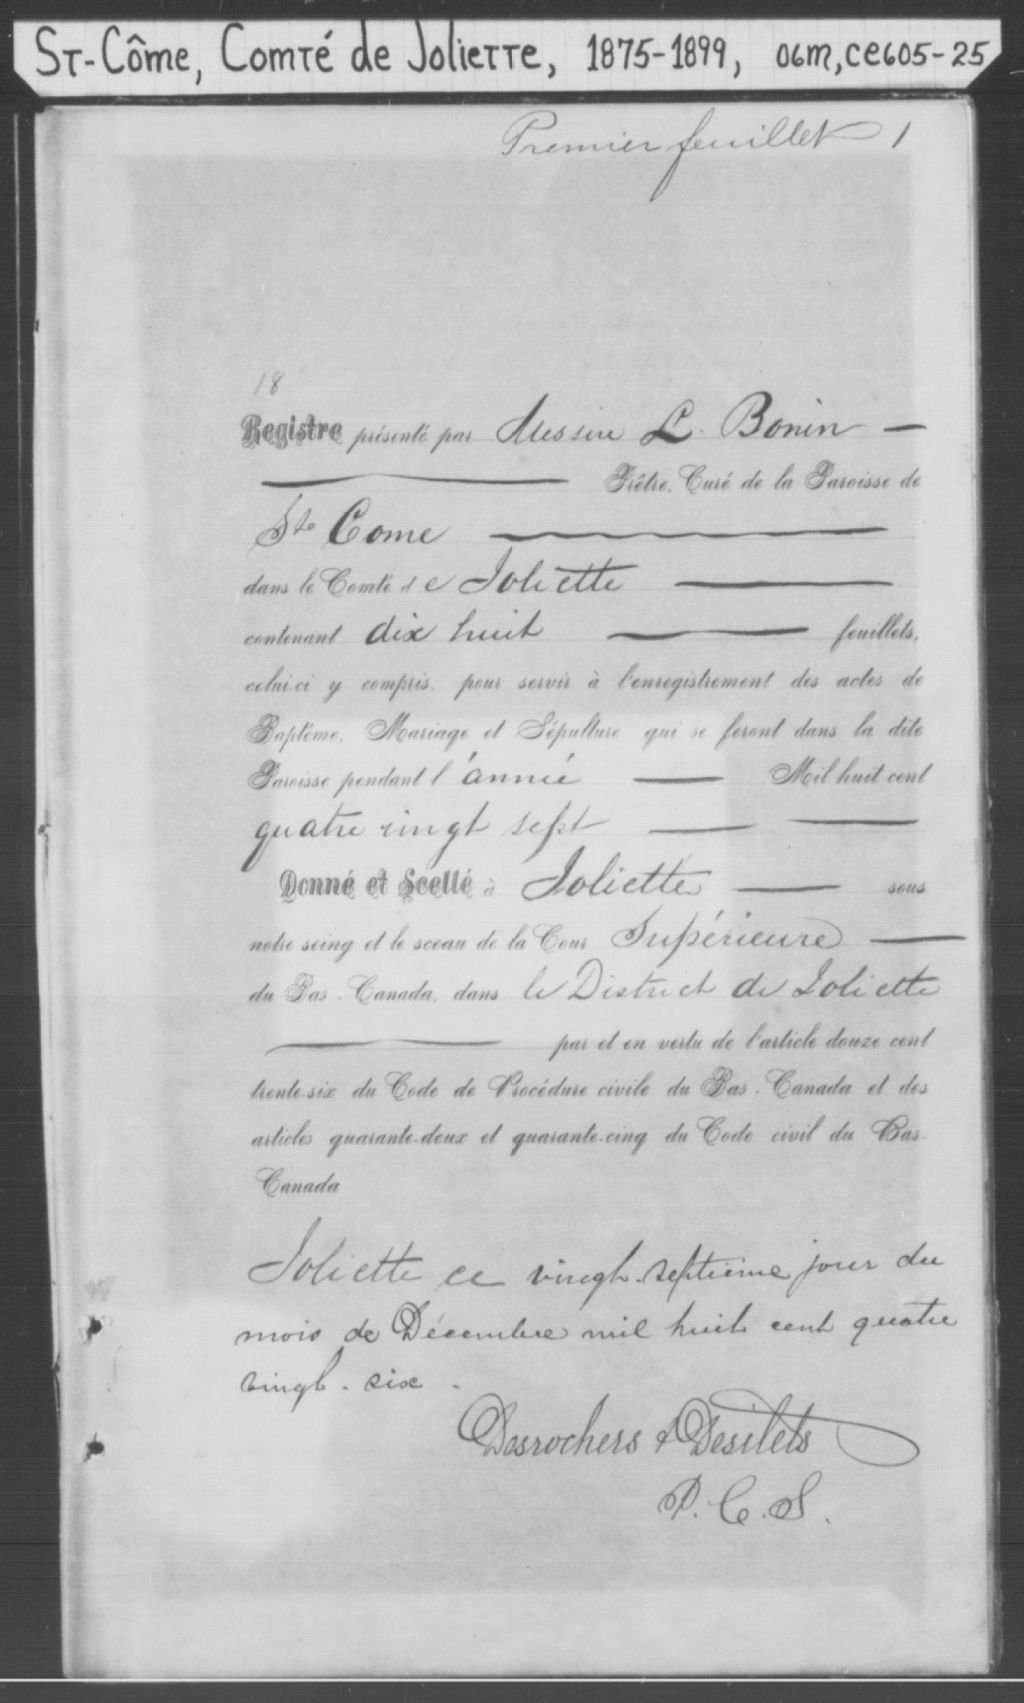 St-Côme, Comté de Joliette, 1875-1899, 06m, ce605-25
Premier feuillet 1
18
Registre présenté par Messire L. Bonin —
Prêtre, Curé de la Paroisse de
Ste Come
dans le Comté de Joliette
contenant dix huit feuillets,
celui-ci y compris, pour servir à l'enregistrement des actes de
Baptême, Mariage et Sépulture qui se feront dans la dite
Paroisse pendant l'année Mil huit cent
quatre vingt sept
Donné et Scellé à Joliette sous
notre seing et le sceau de la Cour Supérieure
du Bas-Canada, dans le District de Joliette
par et en vertu de l'article douze cent
trente-six du Code de Procédure civile du Bas-Canada et des
articles quarante-deux et quarante-cinq du Code civil du Bas-
Canada
Joliette ce vingt-septième jour du
mois de Décembre mil huit cent quatre
vingt-six.
Desrochers & Desilets
P. C. S.